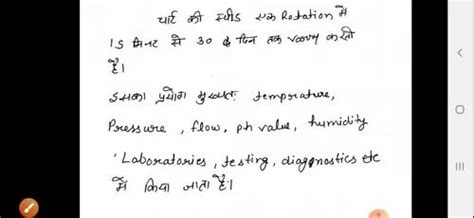 चार्ट की स्पीड एक Rotation में
15 मिनट से 30 दिन तक vary करती
है।
इसका प्रयोग मुख्यतः temperature,
Pressure, flow, ph value, humidity
Laboratories, testing, diagnostics etc
में किया जाता है।